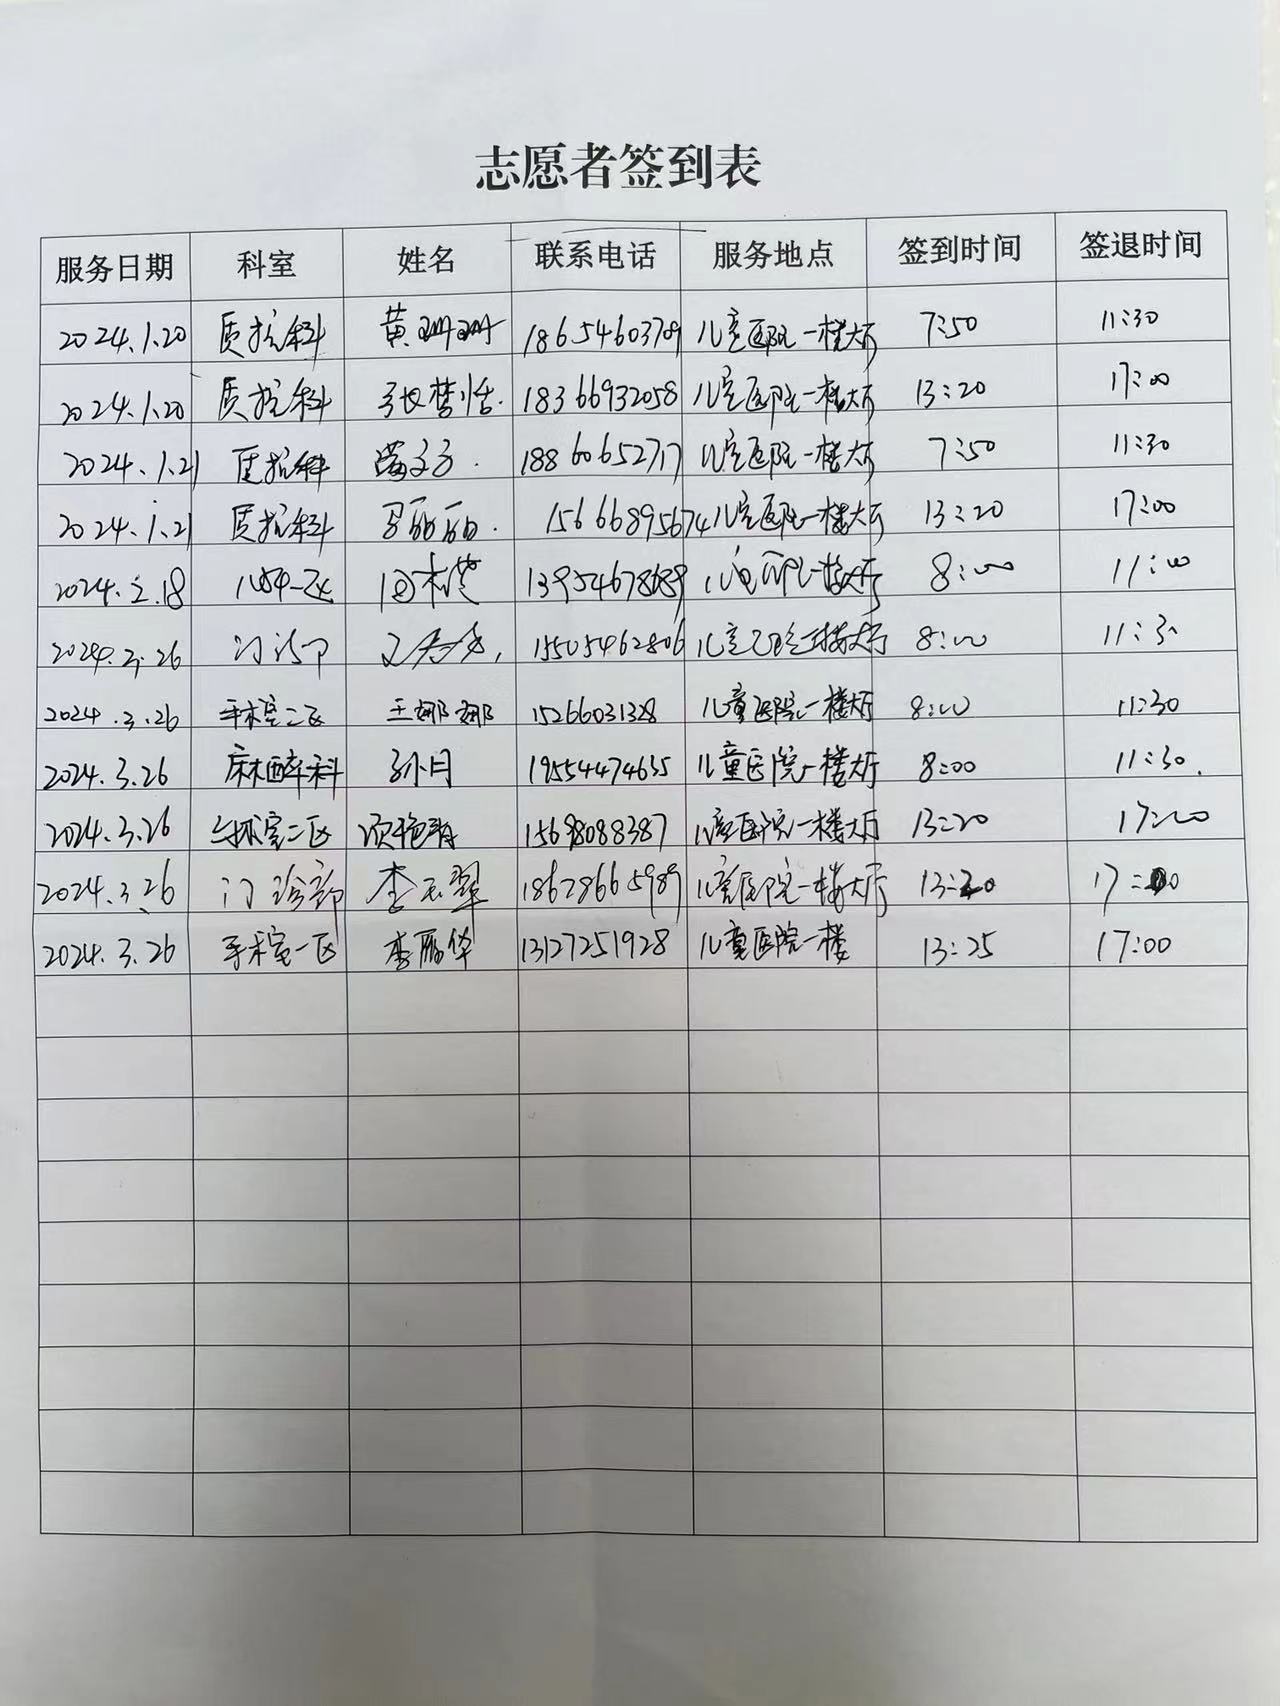 志愿者签到表
服务日期 科室 姓名 联系电话 服务地点 签到时间 签退时间
2024.1.20 质控科 黄珊珊 18654603709 儿童医院一楼大厅 7:50 11:30
2024.1.20 质控科 张梦恬 18366932058 儿童医院一楼大厅 13:20 17:00
2024.1.21 质控科 18860652717 儿童医院一楼大厅 7:50 11:30
2024.1.21 质控科 丽丽 15666895674 儿童医院一楼大厅 13:20 17:00
2024.2.18 儿 一区 13954678689 儿童医院一楼大厅 8:00 11:00
2024.3.26 门诊部 15505462806 儿童医院一楼大厅 8:00 11:30
2024.3.26 手术室二区 王娜娜 15266031328 儿童医院一楼大厅 8:00 11:30
2024.3.26 麻醉科 孙月 19554474635 儿童医院一楼大厅 8:00 11:30.
2024.3.26 手术室二区 15698088387 儿童医院一楼大厅 13:20 17:00
2024.3.26 门诊部 李玉翠 18628665989 儿童医院一楼大厅 13:20 17:00
2024.3.26 手术室一区 李雁华 13127251928 儿童医院一楼 13:25 17:00